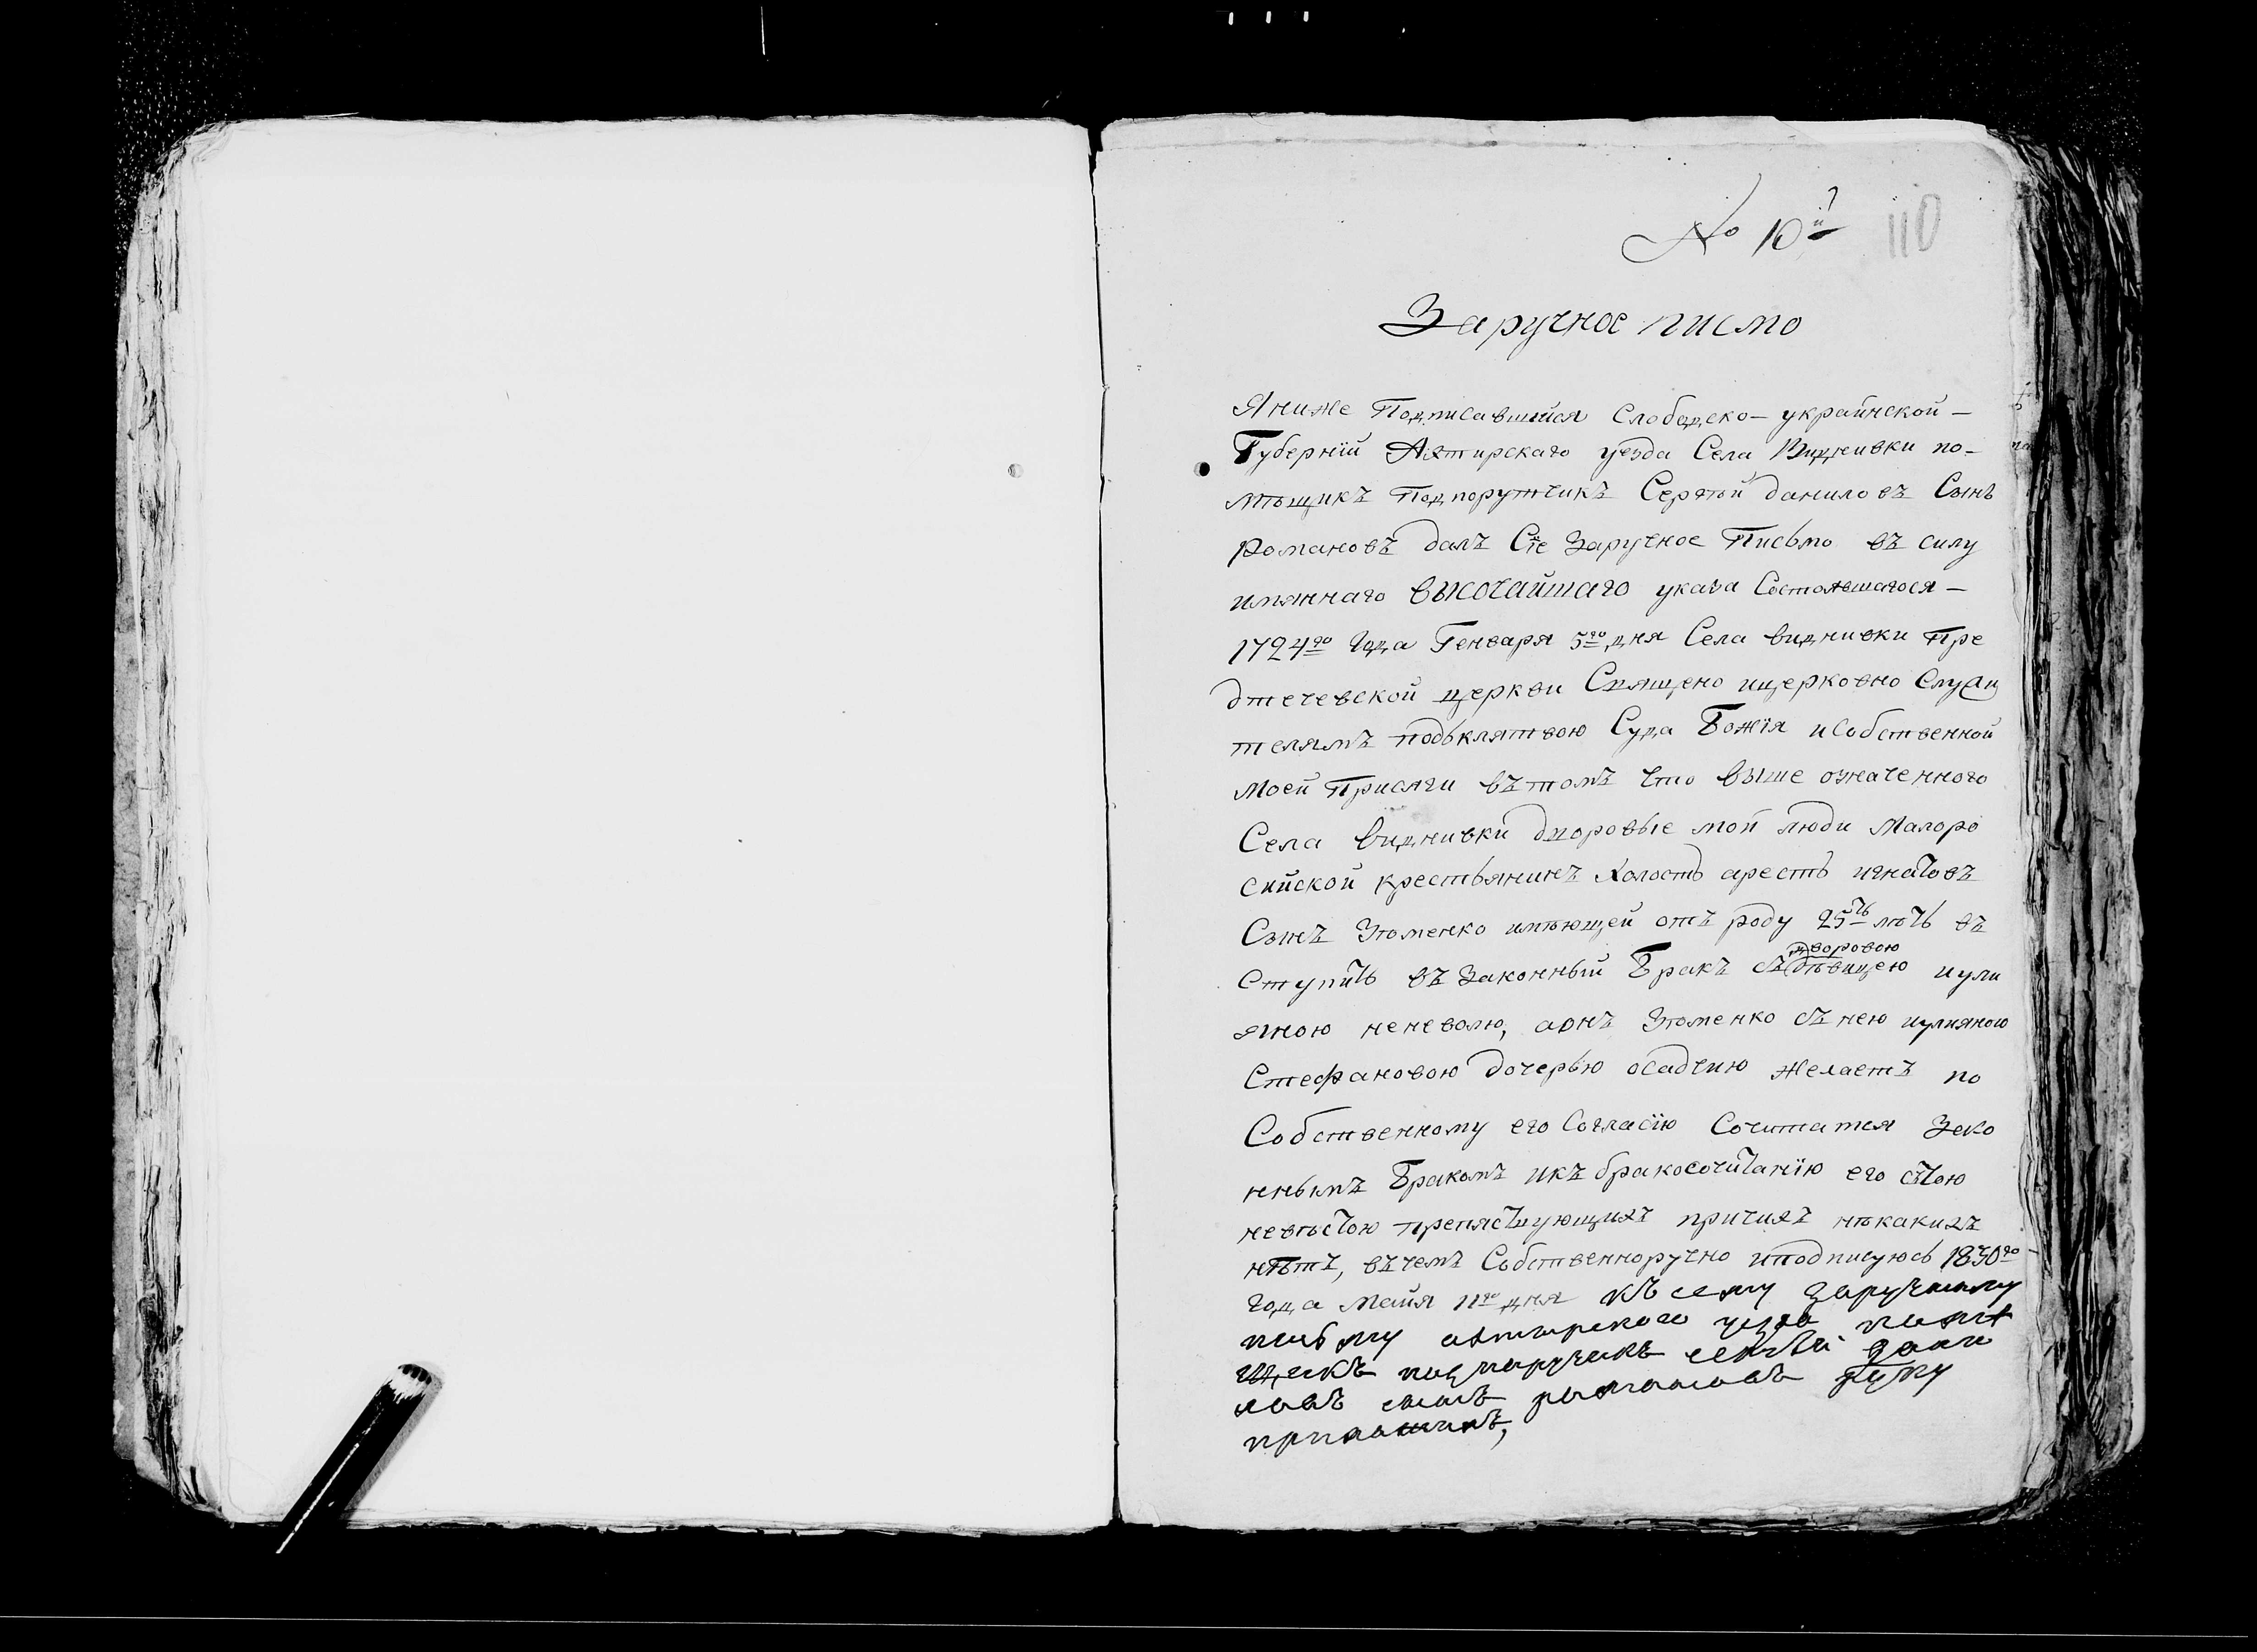 № 10й 110
Заручное писмо
Я ниже Подписавшийся Слободско-украинской-
Губерніи Ахтирскаго уезда Села Видневки по-
мѣщикъ Подпоручикъ Сергѣй даниловъ Сынъ
Романовъ далъ Сіе Заручное Письмо въ силу
имяннаго высочайшаго указа Состоявшагося-
1724го года Генваря 5го дня Села видневки Пре
дтечевской церкви Священо ицерковно Служи
телямъ подъклятвою Суда Божія иСобственной
моей Присяги въ томъ что выше означенного
Села видневки дворовые мои люди Малоро
сийской крестьянинъ Холостъ арестъ игнатовъ
Сынъ имѣющей отъ роду 25ть лѣтъ въ
ступить въ Законный Бракъ съ дворовою дѣвицею иули
яною неневолю, аонъ съ нею иулияною
Стефановою дочерью осадчию желаетъ по
Собственному его Согласію Сочитатся Зако
ннымъ Бракомъ икъ бракосочитанію его стою
невѣстою препятствующихъ причихъ нѣкакихъ
нѣтъ, въ чемъ Собственноручно иподписуюсь 1830го
года маия 11го дня Къ сему заручному
письму ахтирского уезда помѣ
щикъ подпаручикъ сергѣй дани
ловъ сынъ романовъ руку
приложилъ,